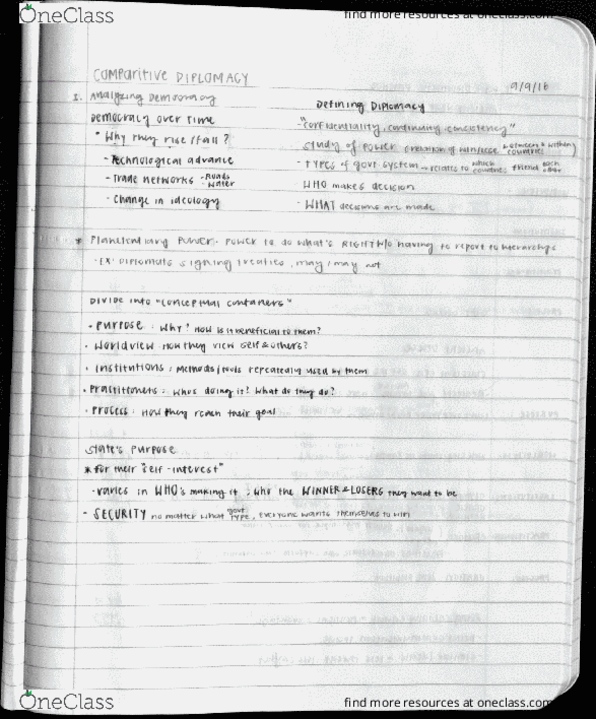 OneClass
find more resources at oneclass.com
COMPARITIVE DIPLOMACY
9/9/16
I. Analyzing Democracy
Democracy over time
* Why they rise/fall?
- Technological advance
- Trade networks - Roads
- Water
- Change in ideology
Defining Diplomacy
- "confidentiality, continuity, consistency"
study of power between & within countries)
- TYPES of govt system - relates to which countries each other
WHO makes decision
- WHAT decisions are made
* Power. Power to do what's RIGHT W/O having to report to
- EX: Diplomats signing treaties, may/may not
Divide into "conceptual containers"
- Purpose: Why? How is it beneficial to them?
- Worldview: How they view self & others?
- Institutions: Methods/tools repeatedly used by them
- Practitioners: Who's doing it? What do they do?
- Process: How they reach their goal
State's Purpose
* for their "self-interest"
- varies in WHO's making it; who the WINNER & LOSERS they want to be
- SECURITY no matter what govt type, everyone wants themselves to win
OneClass
find more resources at oneclass.com